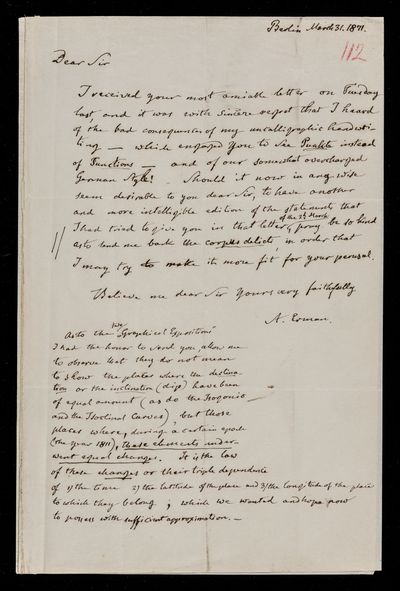 Berlin March 31. 1871.
112
Dear Sir
I received your most amiable letter on Tuesday
last, and it was with sincere regret that I heard
of the bad consequences of my uncalligraphic handwri-
ting — which engaged you to see Puzzle instead
of Functions — and of our somewhat overcharged
German Style! Should it now in any wise
seem desirable to you dear Sir, to have another
and more intelligible edition of the statements that
I had tried to give you in that letter, pray be so kind
of the 2d March
as to send me back the corpus delicti, in order that
I may try to make it more fit for your perusal.
Believe me dear Sir yours very faithfully
A. Erman.
As to the two "Graphical Expositions"
I had the honor to send you, allow me
to observe that they do not mean
to show the places where the declina-
tion or the inclination (dip) have been
of equal amount (as do the Isogonic
and the Isoclinal Curves) but those
places where, during a certain epoch
(the year 1811), these elements under-
went equal changes. It is the law
of these changes or their triple dependence
of 1) the time 2) the latitude of the place and 3) the longitude of the place
to which they belong, which we wanted and hope now
to possess with sufficient approximation. —